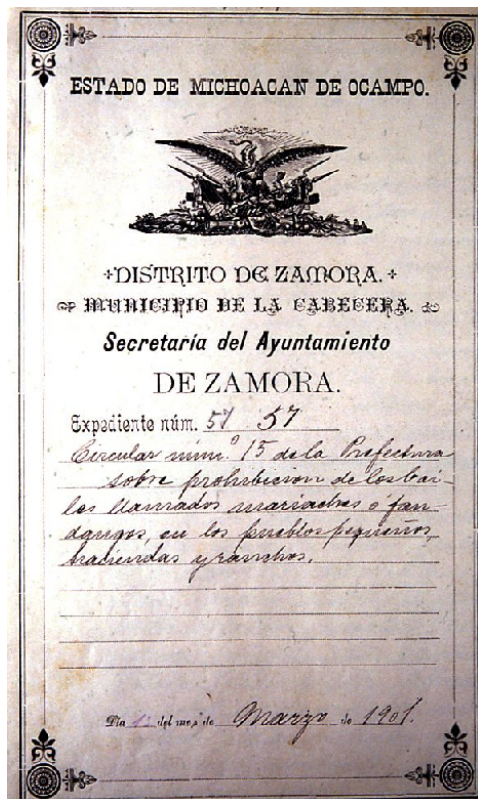 ESTADO DE MICHOACAN DE OCAMPO.
DISTRITO DE ZAMORA.
MUNICIPIO DE LA CABECERA.
Secretaría del Ayuntamiento
DE ZAMORA.
Expediente núm. 57 57
Circular núm.º 15 de la Prefectura
sobre prohibicion de los bai-
les llamados mariachis ó fan-
dangos, en los pueblos pequeños,
haciendas y ranchos.
Día del mes de Marzo de 1901.